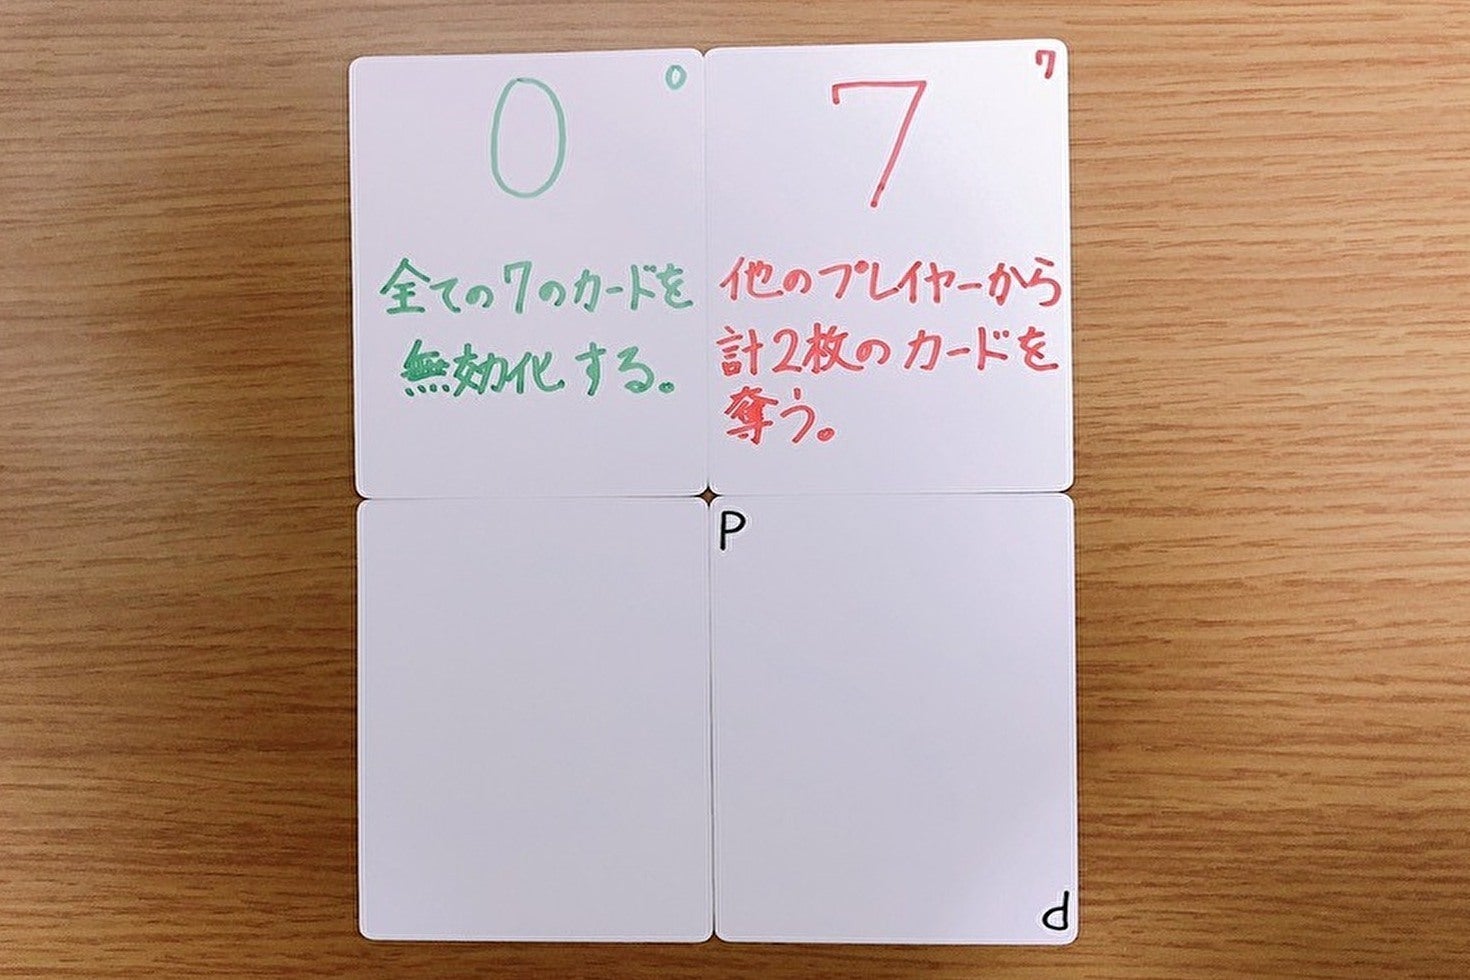 0
0
全ての7のカードを
無効化する。
7
7
他のプレイヤーから
計2枚のカードを
奪う。
P
d